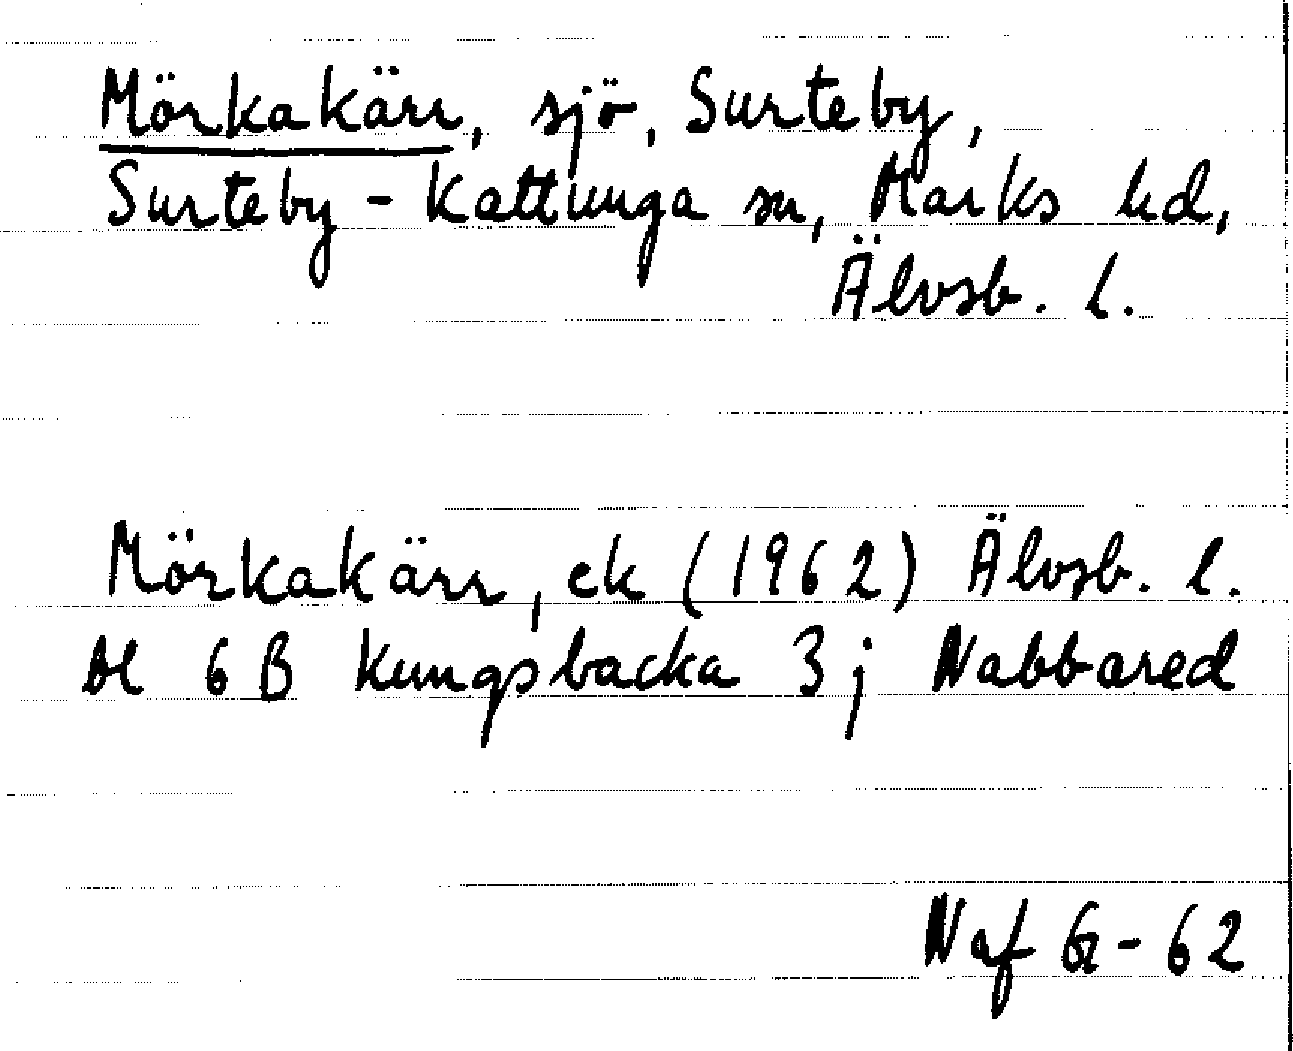 Mörkakärr, sjö, Surteby,
Surteby - Kattunga sn, Marks hd,
Älvsb. l.
Mörkakärr, ek (1962) Älvsb. l.
Bl 6 B Kungsbacka 3 j Nabbared
Naf G - 62